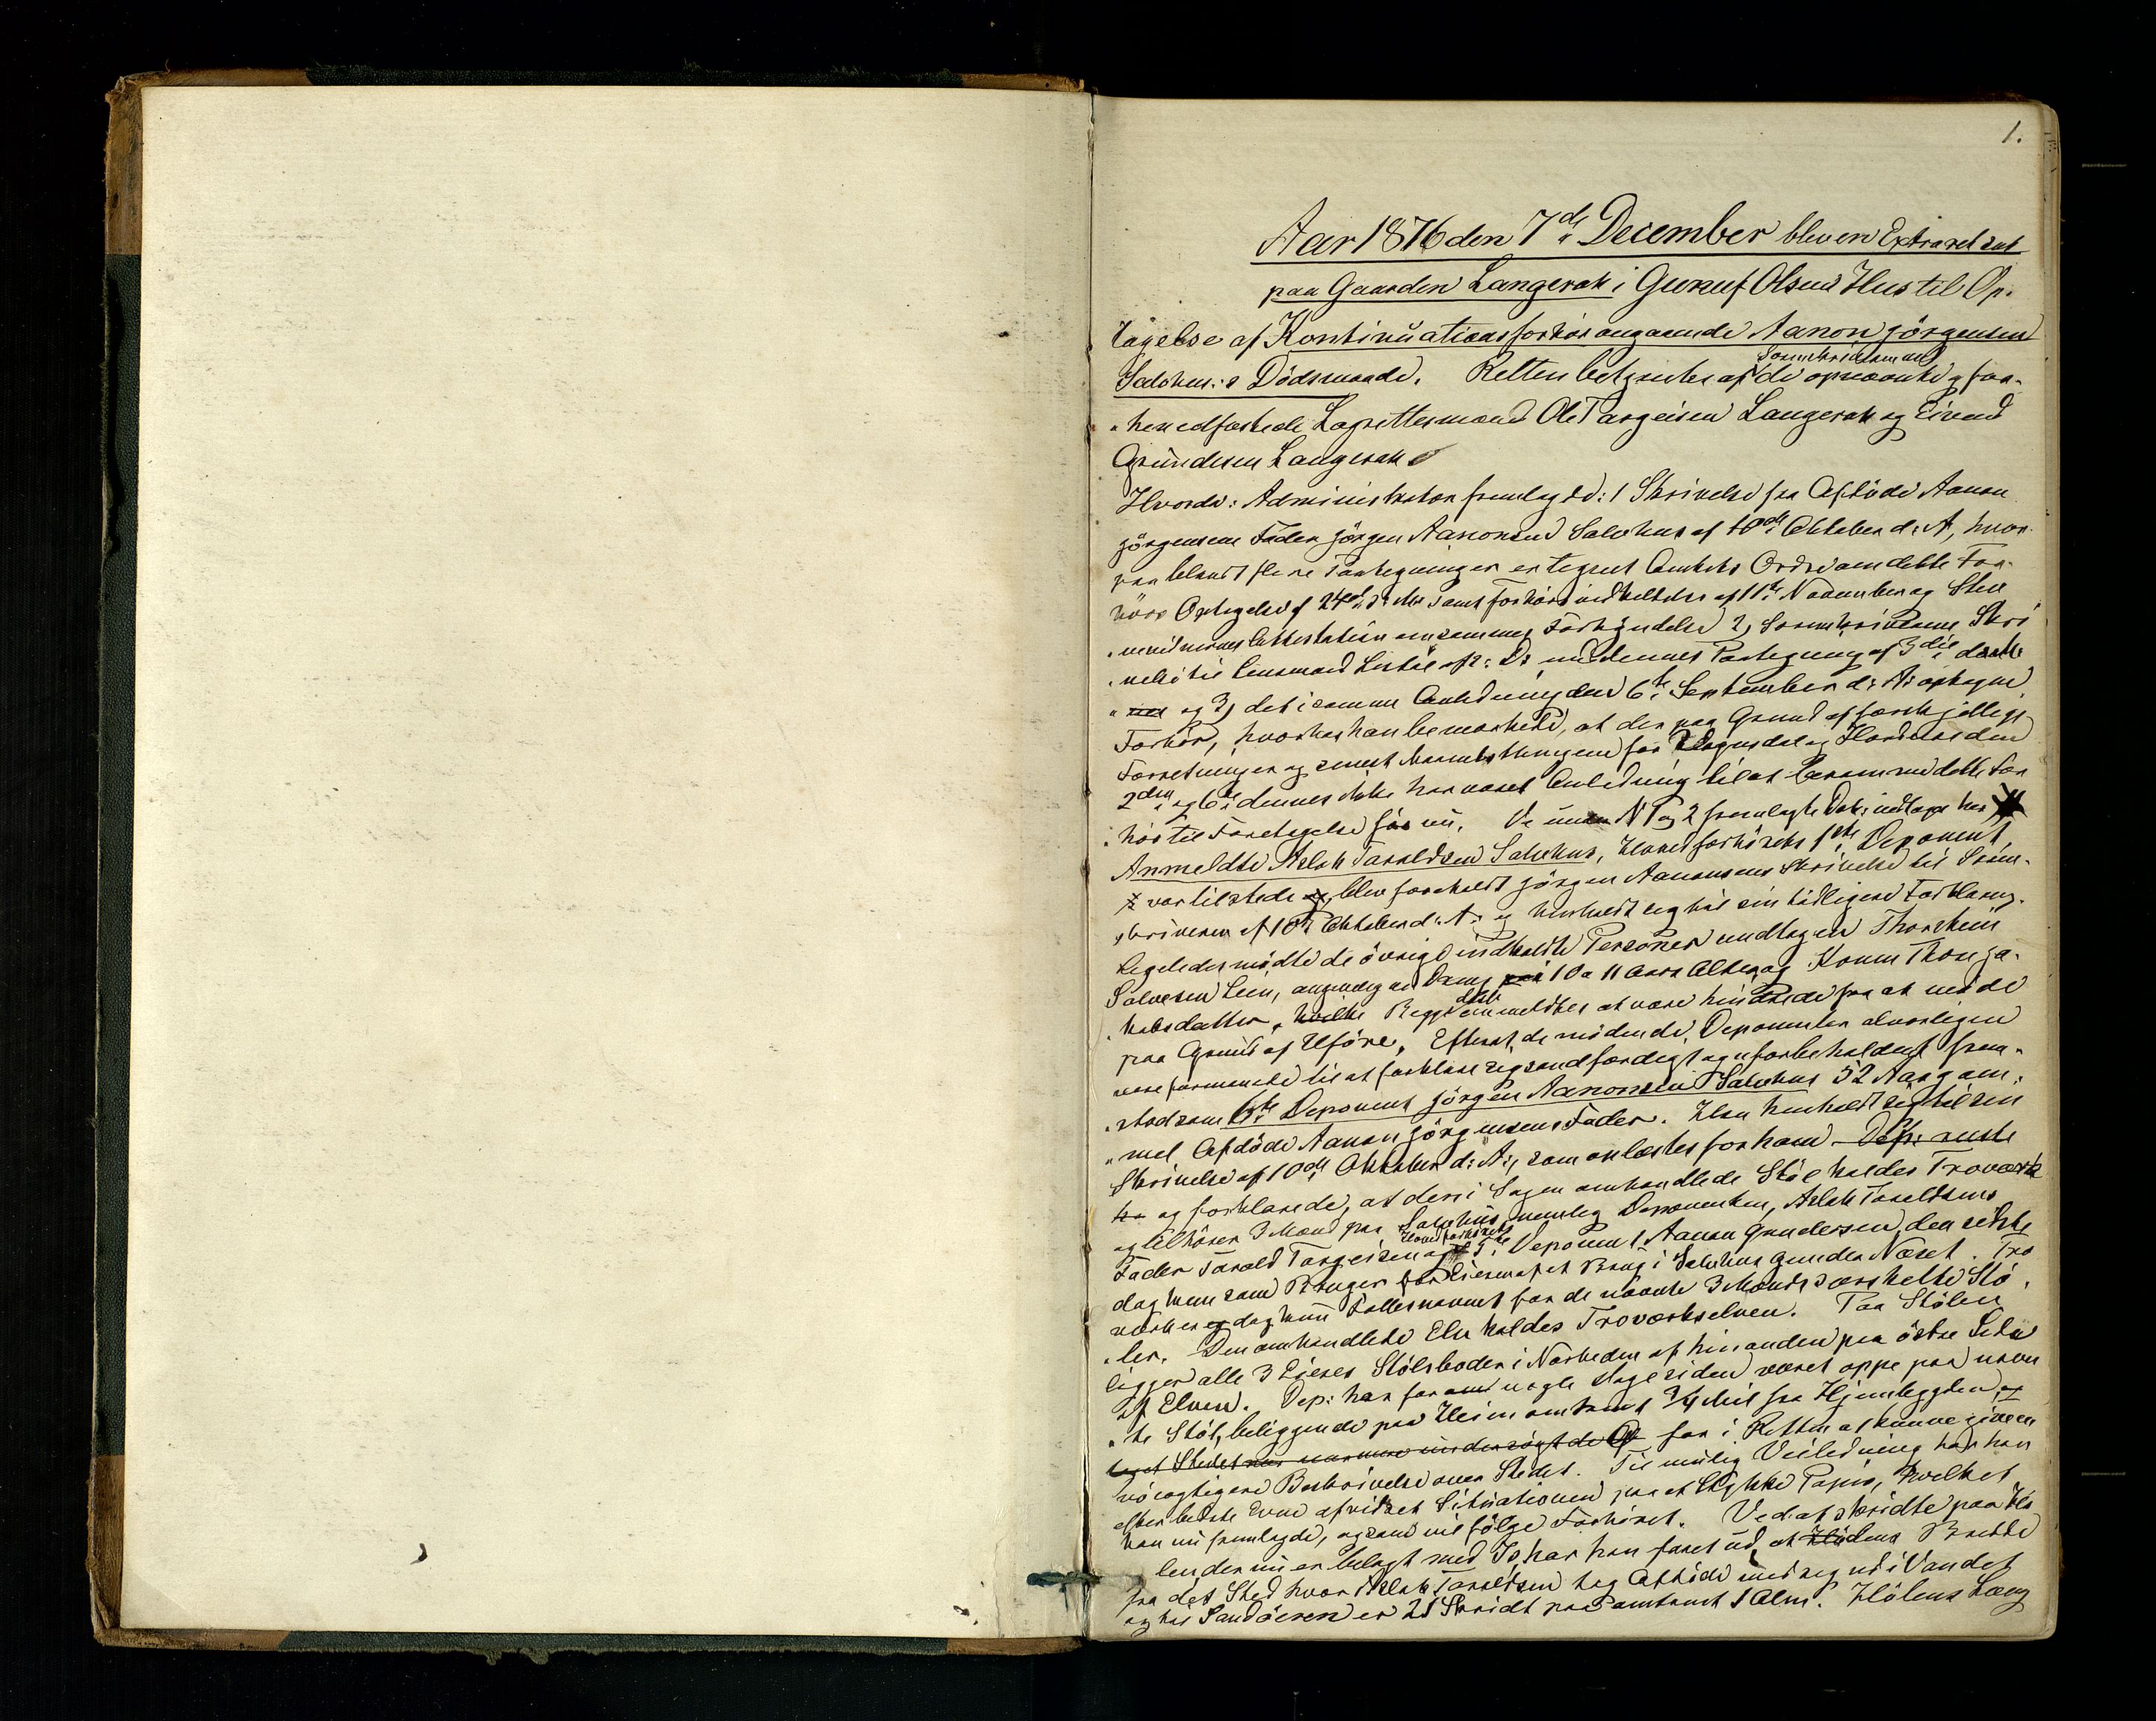 1.
Aar 1876 den 7de December blev en Extraret sat
paa Gaarden Langerak i Gunuf Olsens Hus til Op-
tagelse af Kontinuationsforhør angaaende Aanon Jörgensen
Salvhus:s Dödsmaade. Retten betjentes af Sorenskriveren med
de opnævnte og for-
henedfæstede Lagrettesmænd Ole Targeisen Langerak og Eivind
Gundersen Langerak
Hvorda: Administrator fremlagde: 1 Skrivelse fra Afdöde Aanon
Jörgensens Fader Jörgen Aanonsen Salvhus af 10de Oktober d: A, hvor-
paa blandt flere Paategninger er tegnet Amtets Ordre om dette For-
hörs Optagelse af 24de samt Forhörsindkaldelse af 11te November og Stev
nevidnernes Attestation om sammes Forkyndelse 2, Sorenskriverens Skri
velse til Lensmand af 2: Ds med dennes Paategning af 3die
og 3, det i samme Anledning den 6te September d: A: optagne
Forhör, hvorhos han bemærkede, at der paa Grund af forskjellige
Forretninger og senest for og
2den og 6te dennes ikke har været Anledning til at berammee dette For
hör til Foretagelse för nu. De under N 1 og 2 fremlagte Dok: indtages her
Anmeldte Aslak Taraldsen Salvhus, Hovedforhörets 1ste Deponent
var tilstede blev foreholdt Jörgen Aanonsens Skrivelse til Soren-
skriveren af 10de Oktober d: A: og henholdt sig til sin tidligere Forklaring.
Ligeledes mödte de övrige indkaldte Personer undtagen Thorstein
Salvesen Lien, angivelig en Dreng 10 a 11 Aars Alder, og Konen Thone Ja-
kobsdatter, hvilke Begge anmeldtes at være hindrede fra at möde
paa Grund af Uföre. Efterat de mödende Deponenter alvorligen
vare formanede til at forklare sig sandfærdigt og uforbeholdent frem-
stod som 6te Deponent Jörgen Aanonsen Salvhus 52 Aar gam-
mel Afdöde Aanon Jörgensens Fader. Han henholdt sig til sin
Skrivelse af 10de Oktober d: A:, som oplæstes for ham
og forklarede, at den i Sagen omhandlede Stöl kaldes Troværk
og tilhörer 3 Mænd paa Salvhus, nemlig Deponenten, Aslak Taraldsens
Fader Tarald Targeisen og Hovedforhörets 5te Deponent Aanon Gundersen, den sidste
dog kun som Bruger for Eieren af et Brug i Salvhus Gunder Næset. Tro
værk er dog kun Fællesnavnet for de nævnte 3 Mænds særskilte Stö
ler. Den omhandlede Elv kaldes Troværkselven. Paa Stölen
ligger alle 3 Eieres Stölsboder i Nærheden af hinanden paa östre Side
af Elven. Dep: har for nogle Dage siden været oppe paa nævn
te Stöl, beliggende paa Heien omtrent 3/4 Mil fra Hjembygden
for i Retten at kunne give en
nöiagtigere Beskrivelse over Stedet. Til mulig Veiledning har han
efter bedste Evne afridset Situationen paa et Stykke Papir, hvilket
han nu fremlagde, og som vil fölge Forhöret. Ved at skridte paa Hö
len der nu er belagt med Is, har han faaet ud, at Bredde
fra det Sted hvor Aslak Taraldsen tog Afdöde med sig ud i Vandet
og til Sandören er 21 Skridt paa omtrent 1 Alen. Hölens Læng